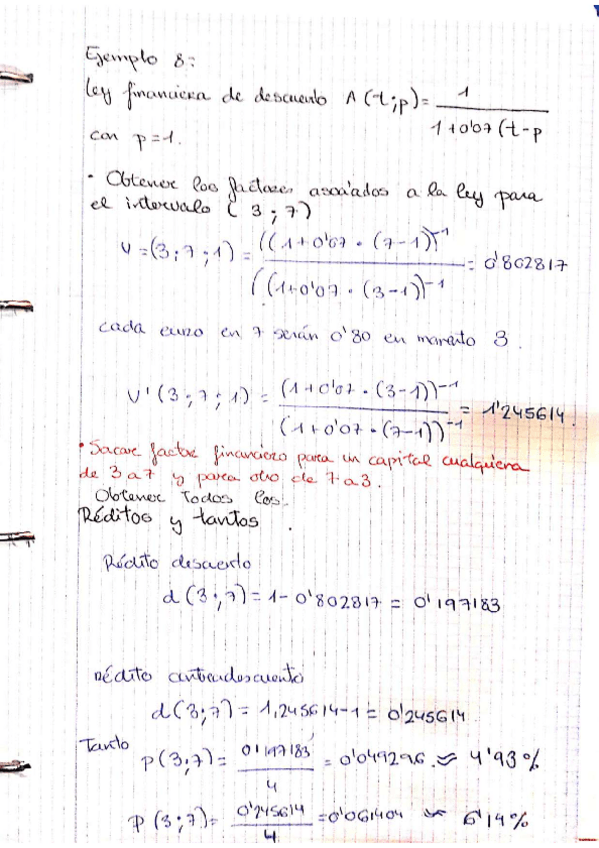 Ejemplo 8:
Ley financiera de descuento A(t;p)= 1 / 1+0'07(t-p
con p=1.
· Obtener los factores asociados a la ley para
el intervalo (3;7)
V=(3;7;1) = ((1+0'07·(7-1))^-1 / ((1+0'07·(3-1))^-1 = 0'802817
cada euro en 7 serán 0'80 en momento 3.
V'(3;7;1) = (1+0'07·(3-1))^-1 / (1+0'07·(7-1))^-1 = 1'245614.
· Sacar factor financiero para un capital cualquiera
de 3 a 7 y para otro de 7 a 3.
Obtener Todos los.
Réditos y tantos.
Rédito descuento
d(3;7)=1-0'802817 = 0'197183
Rédito contradescuento
d(3;7)= 1,245614-1 = 0'245614
Tanto p(3;7)= 0'197183 / 4 = 0'049296 ≈ 4'93%
P(3;7)= 0'245614 / 4 = 0'061404 ≈ 6'14%